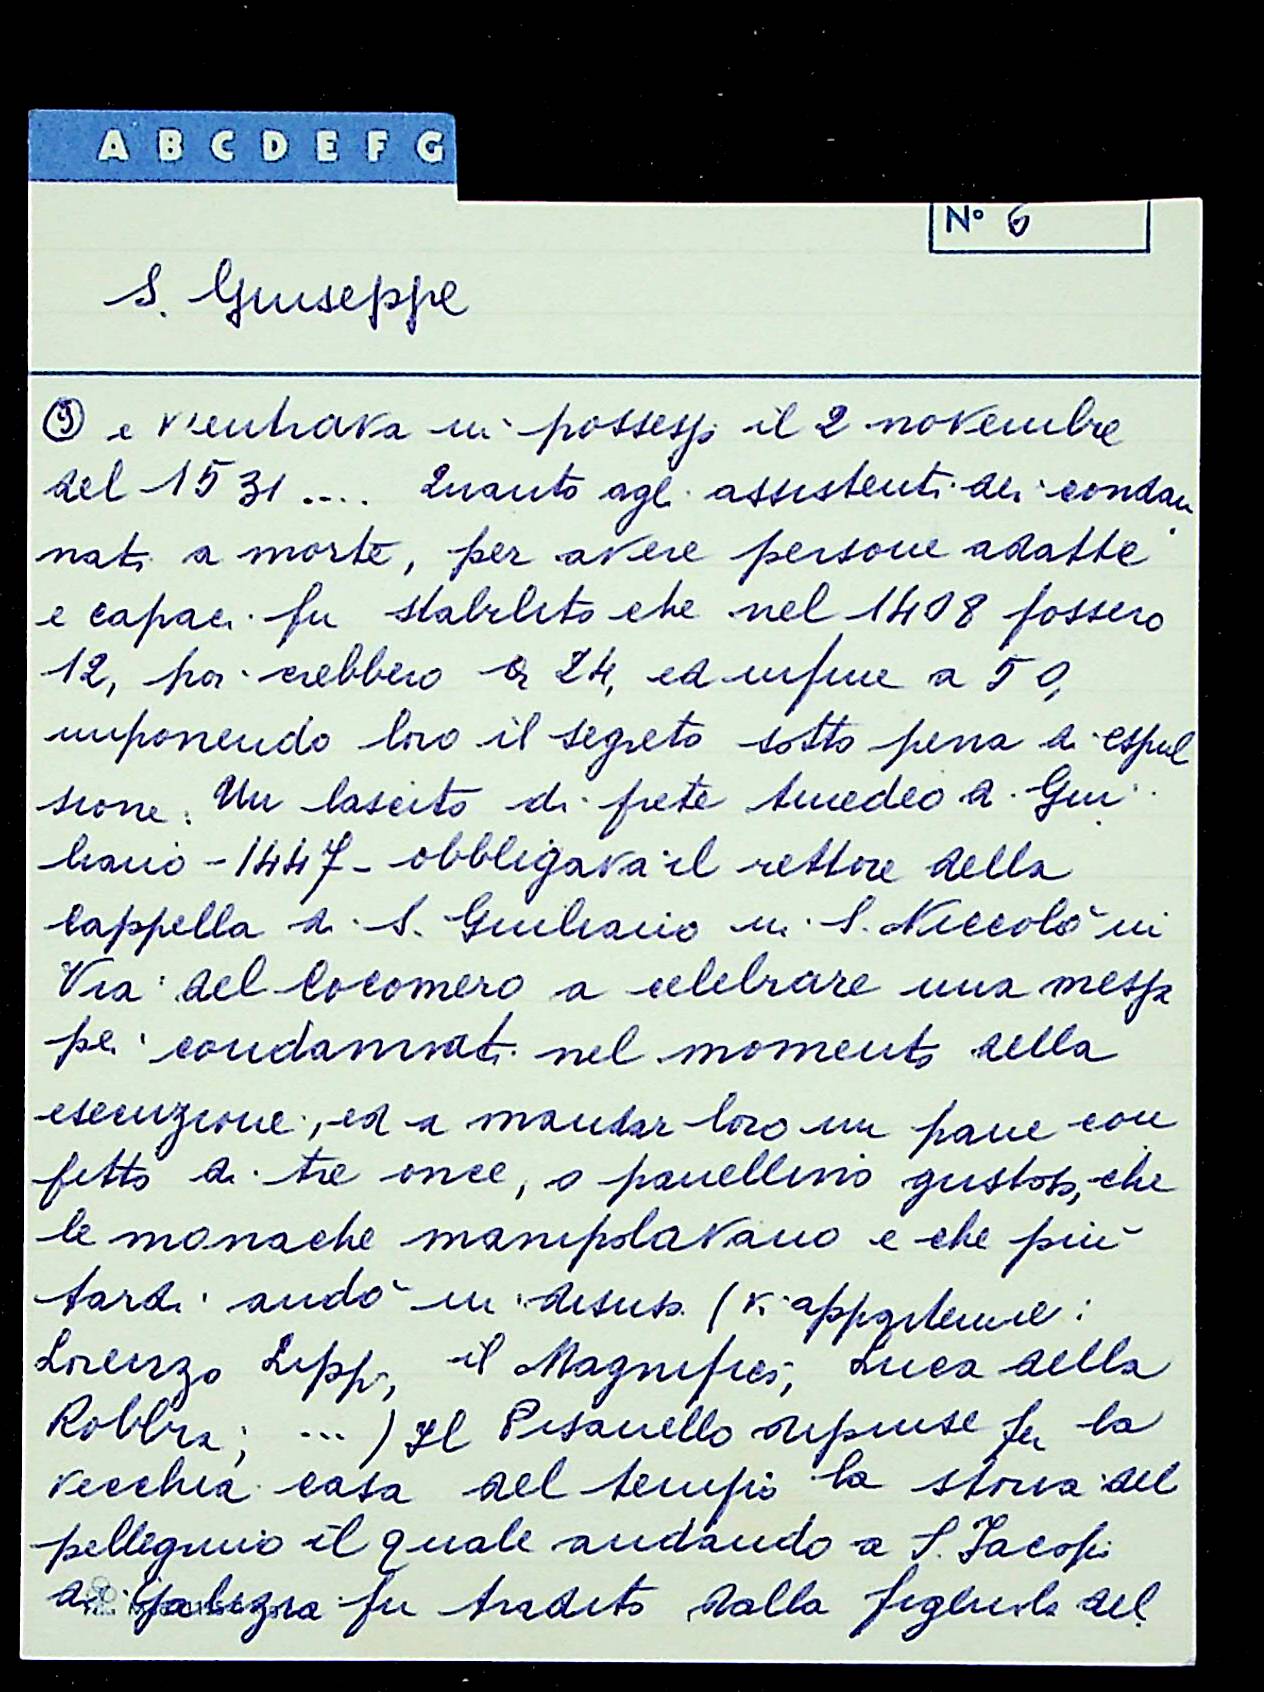 A B C D E F G
N° 6
S. Giuseppe
e rientrava in possesso il 2 novembre
del 1531.... Quanto agli assistenti dei condan
nati a morte, per avere persone adatte
e capaci fu stabilito che nel 1408 fossero
12, poi crebbero a 24, ed infine a 50,
imponendo loro il segreto sotto pena di espul
sione. Un lascito di prete Amedeo di Giu
liano - 1447 - obbligava il rettore della
Cappella di S. Giuliano in S. Niccolò in
Via del Cocomero a celebrare una messa
pei condannati nel momento della
esecuzione, ed a mandar loro un pane con
fetto di tre once, o panellino gustoso, che
le monache manipolavano e che più
tardi andò in disuso. (vi appartenne:
Lorenzo Lippi, il Magnifico, Luca della
Robbia; ...) Il Pisanello dipinse fu la
vecchia casa del tempio la storia del
pellegrino il quale andando a S. Jacopo
di Galizia fu tradito dalla figliuola del